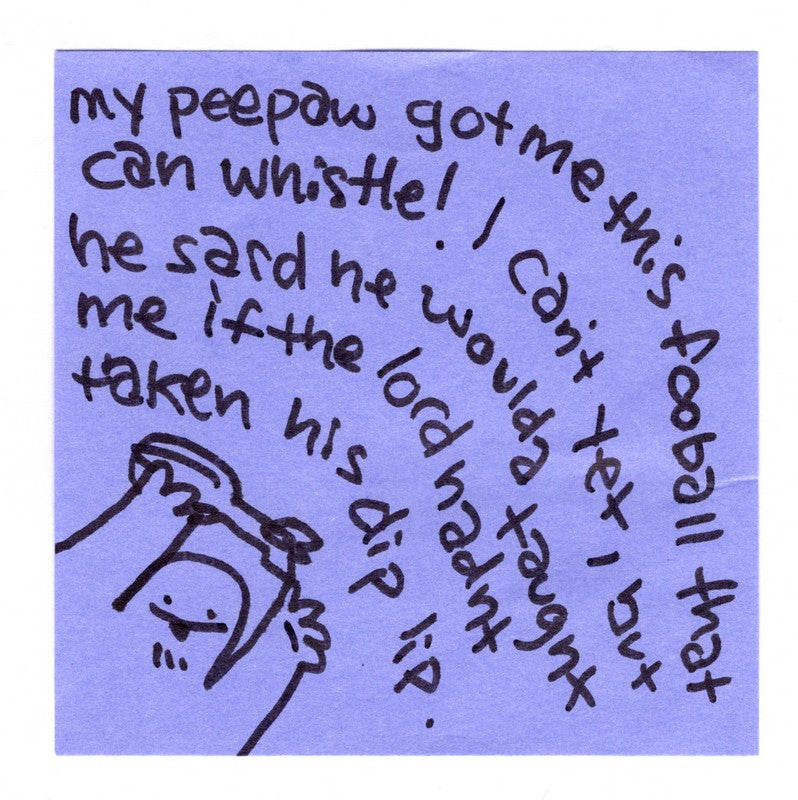 my peepaw got me this fooball that
can whistle! I can't yet, but
he said he woulda taught
me if the lord hadnt
taken his dip lip.